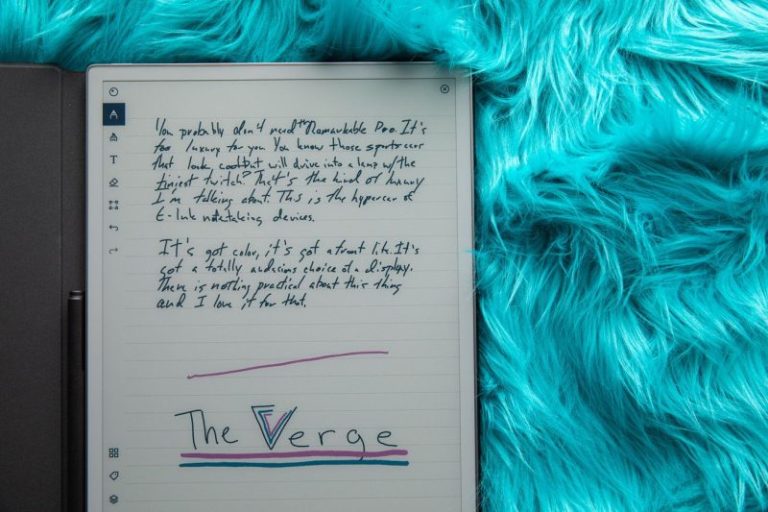 You probably don't need the Remarkable Pro. It's
too luxury for you. You know those sports car
that look cool but will drive into a lamp w/the
tiniest twitch? That's the kind of luxury
I'm talking about. This is the hypercar of
E-Ink notetaking devices.
It's got color, it's got a front lit. It's
got a totally audacious choice of a display.
There is nothing practical about this thing
and I love it for that.
The Verge